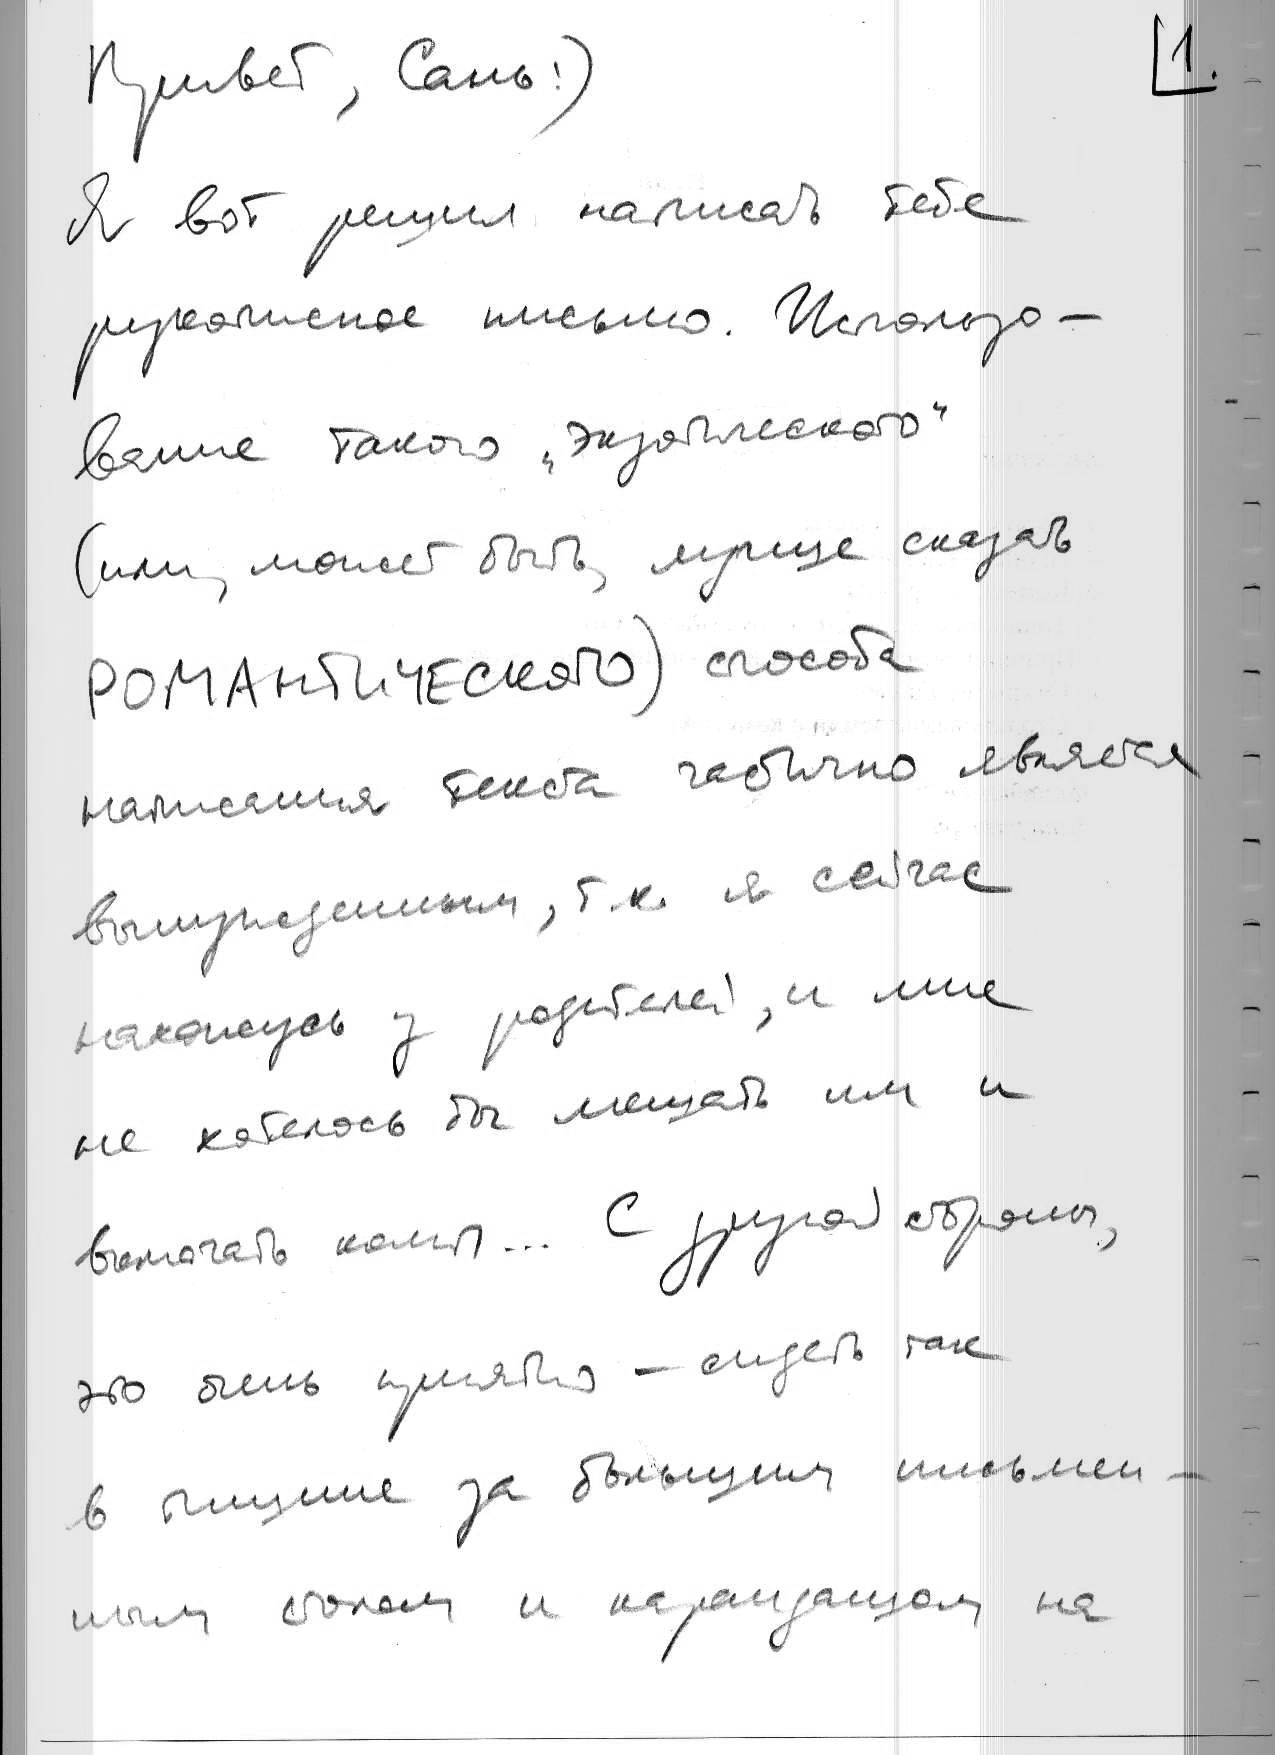 1.
Привет, Сань!)
Я вот решил написать тебе
рукописное письмо. Использо-
вание такого „экзотического“
(или, может быть, лучше сказать
РОМАНТИЧЕСКОГО) способа
написания текста частично является
вынужденным, т.к. я сейчас
нахожусь у родителей, и мне
не хотелось бы мешать им и
включать комп... С другой стороны,
это очень приятно - сидеть так
в тишине за большим письмен-
ным столом и карандашом на